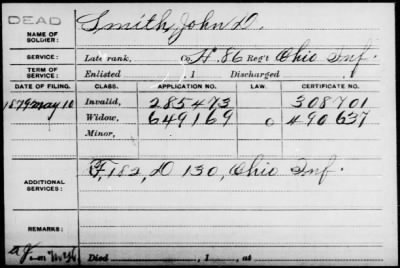 DEAD
NAME OF SOLDIER: Smith, John D.
SERVICE: Late rank, Co. H. 86 Reg't Ohio Inf.
TERM OF SERVICE: Enlisted , 1 Discharged
DATE OF FILING. CLASS. APPLICATION NO. LAW. CERTIFICATE NO.
1879 May 10 Invalid, 285473 308701
Widow, 649169 490637
Minor,
ADDITIONAL SERVICES: F, 182, D 130, Ohio Inf.
REMARKS:
Died , 1 , at